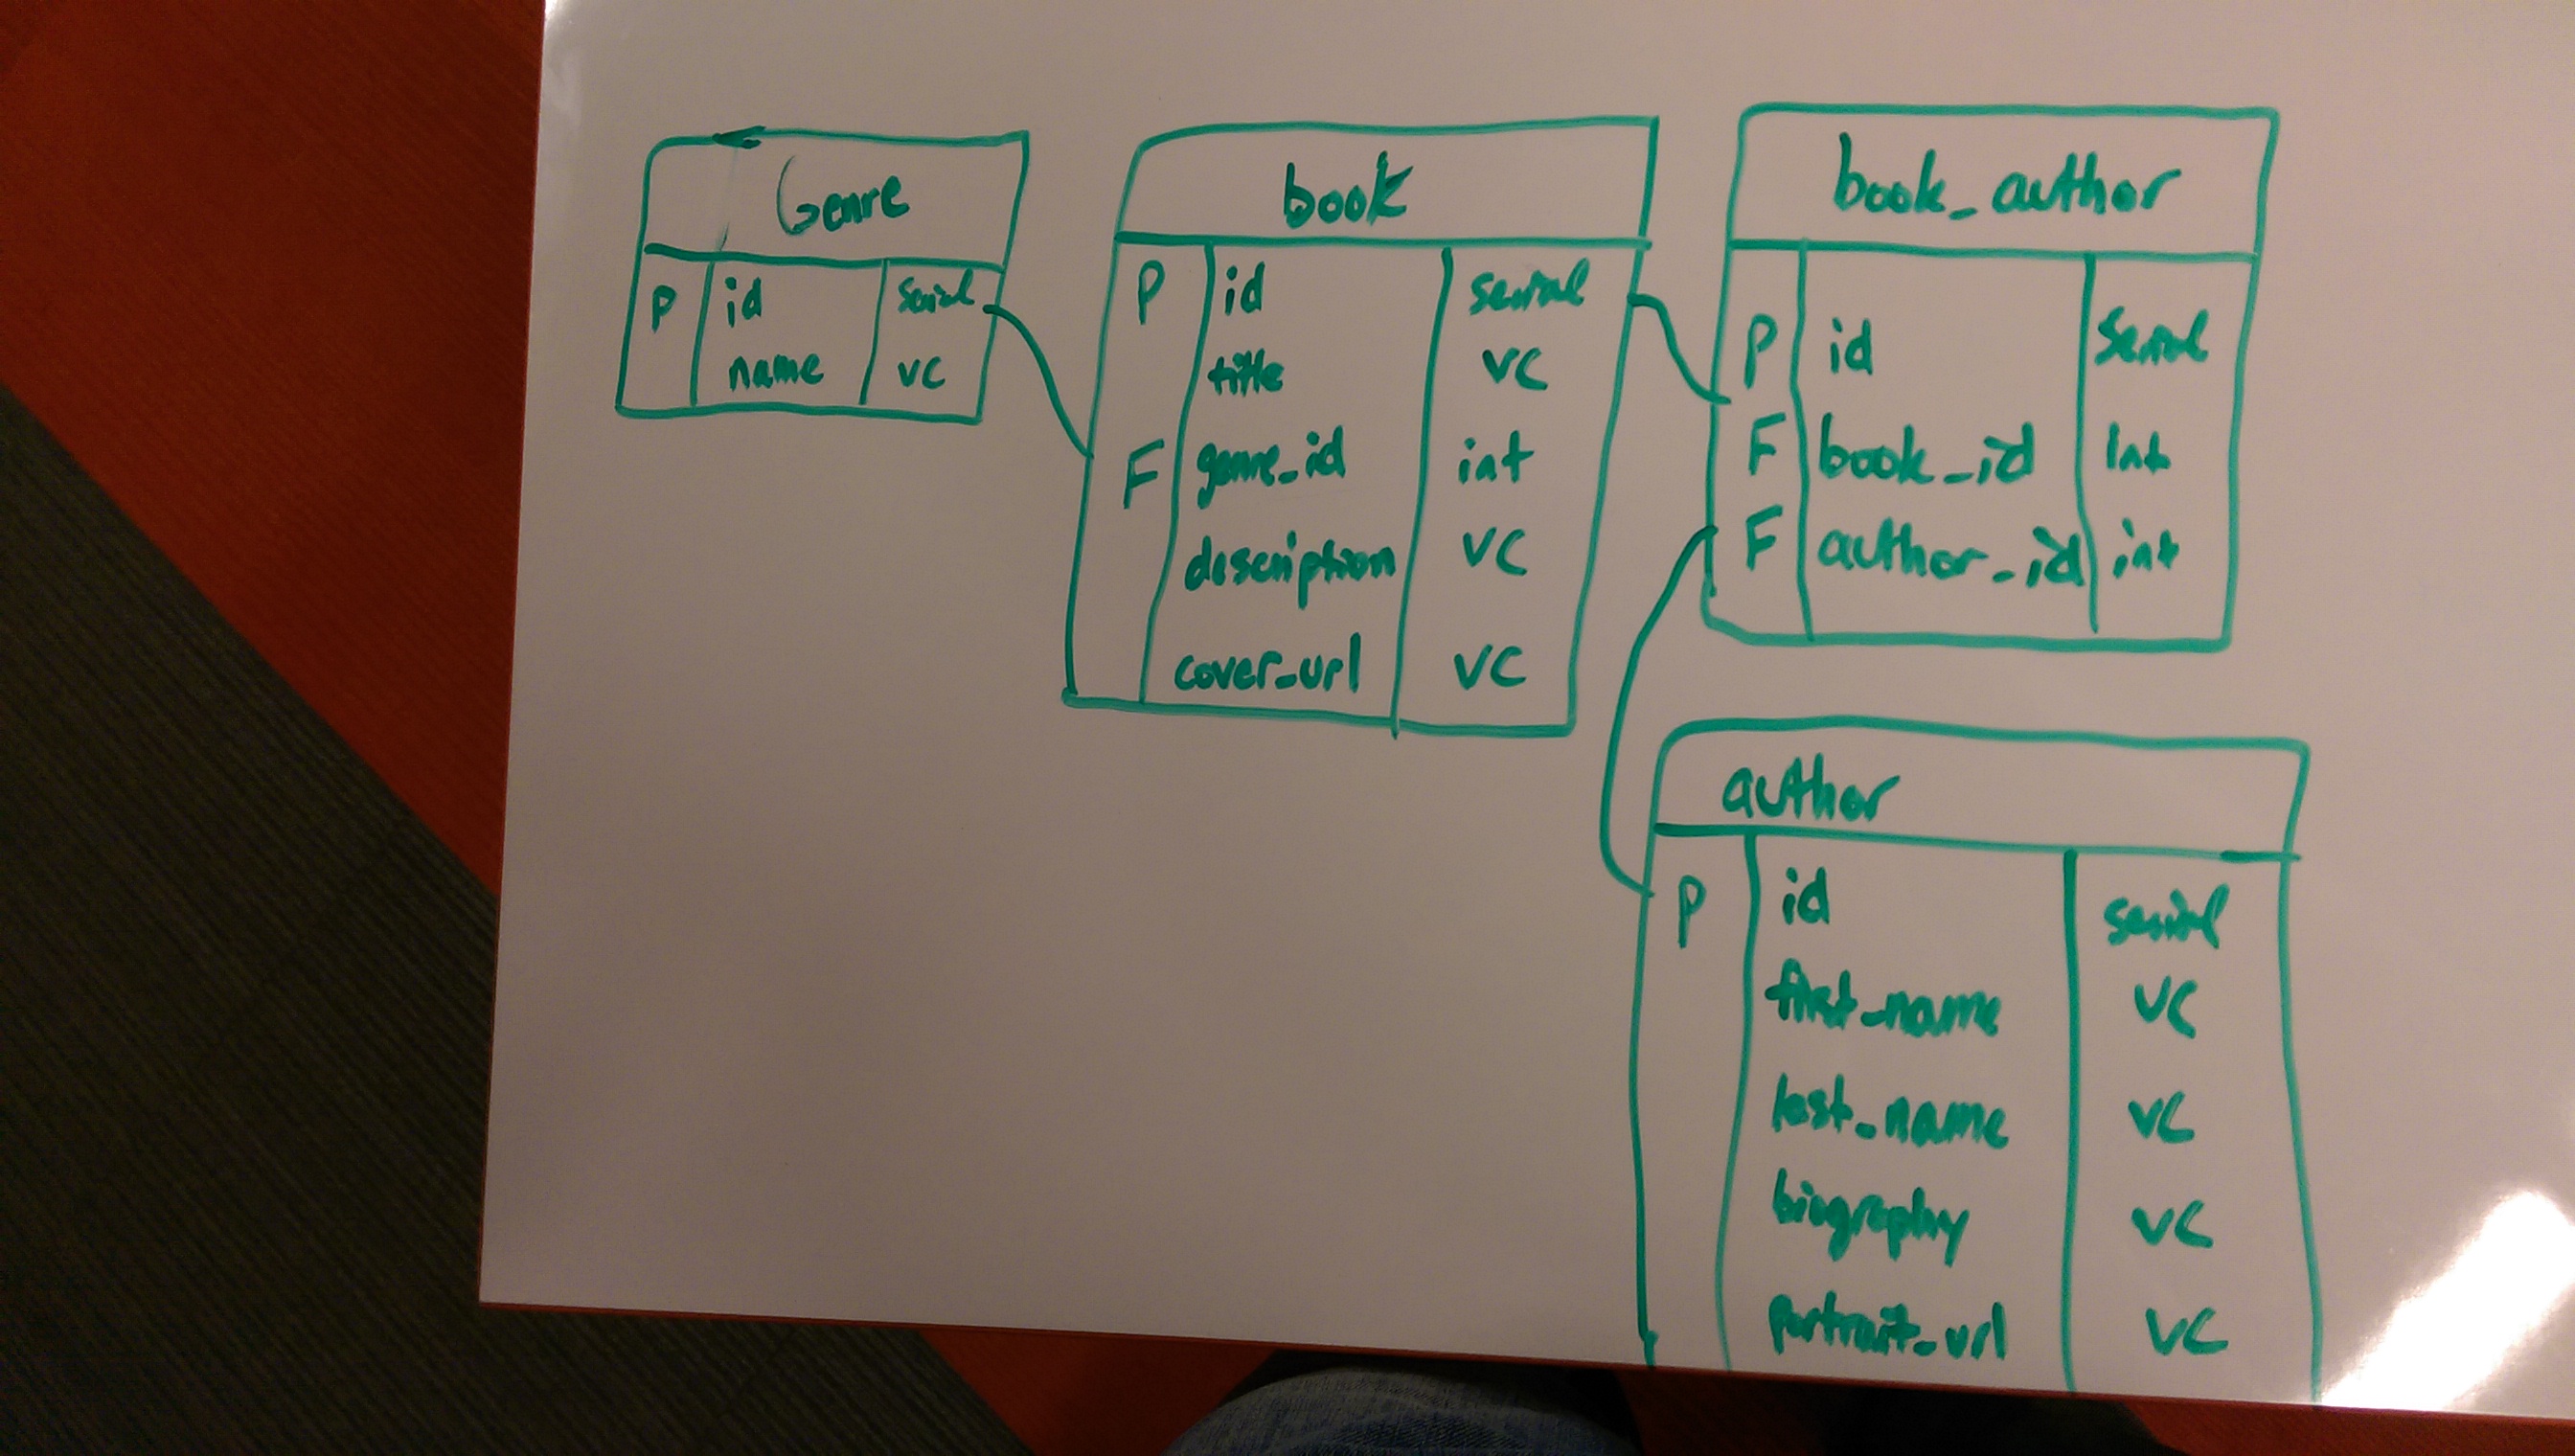 Genre
P id serial
name vc
book
P id serial
title VC
F genre_id int
description VC
cover_url VC
book_author
P id Serial
F book_id Int
F author_id int
author
P id serial
first_name VC
last_name VC
biography VC
portrait_url VC